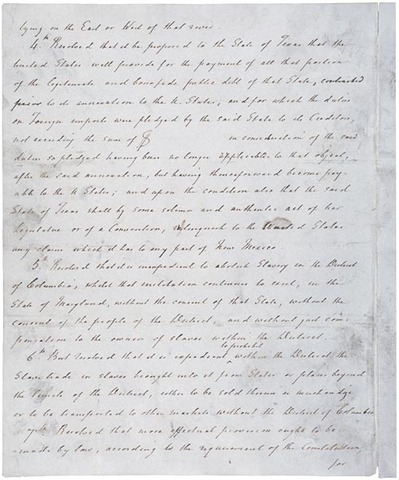 lying on the East or West of that river.
4th Resolved that it be proposed to the State of Texas that the
United States will provide for the payment of all that portion
of the legitimate and bonafide public debt of that State, contracted
prior to its annexation to the U. States, and for which the duties
on Foreign imports were pledged by the said State to its Creditors,
not exceeding the sum of $ in consideration of the said
duties so pledged having been no longer applicable to that object,
after the said annexation, but having thenceforward become pay-
able to the U States; and upon the condition also that the said
State of Texas shall by some solemn and authentic act of her
Legislature or of a Convention, relinquish to the United States
any claim which it has to any part of New Mexico.
5th Resolved that it is inexpedient to abolish Slavery in the District
of Columbia, whilst that institution continues to exist, in the
State of Maryland, without the consent of that State, without the
consent of the people of the District, and without just com-
pensation to the owners of slaves within the District.
to prohibit
6th But Resolved that it is expedient within the District the
Slave trade in slaves brought into it from States or places beyond
the limits of the District, either to be sold therein as merchandize
or to be transported to other markets without the District of Columbia
7th Resolved that more effectual provision ought to be
made by law, according to the requirement of the Constitution,
for